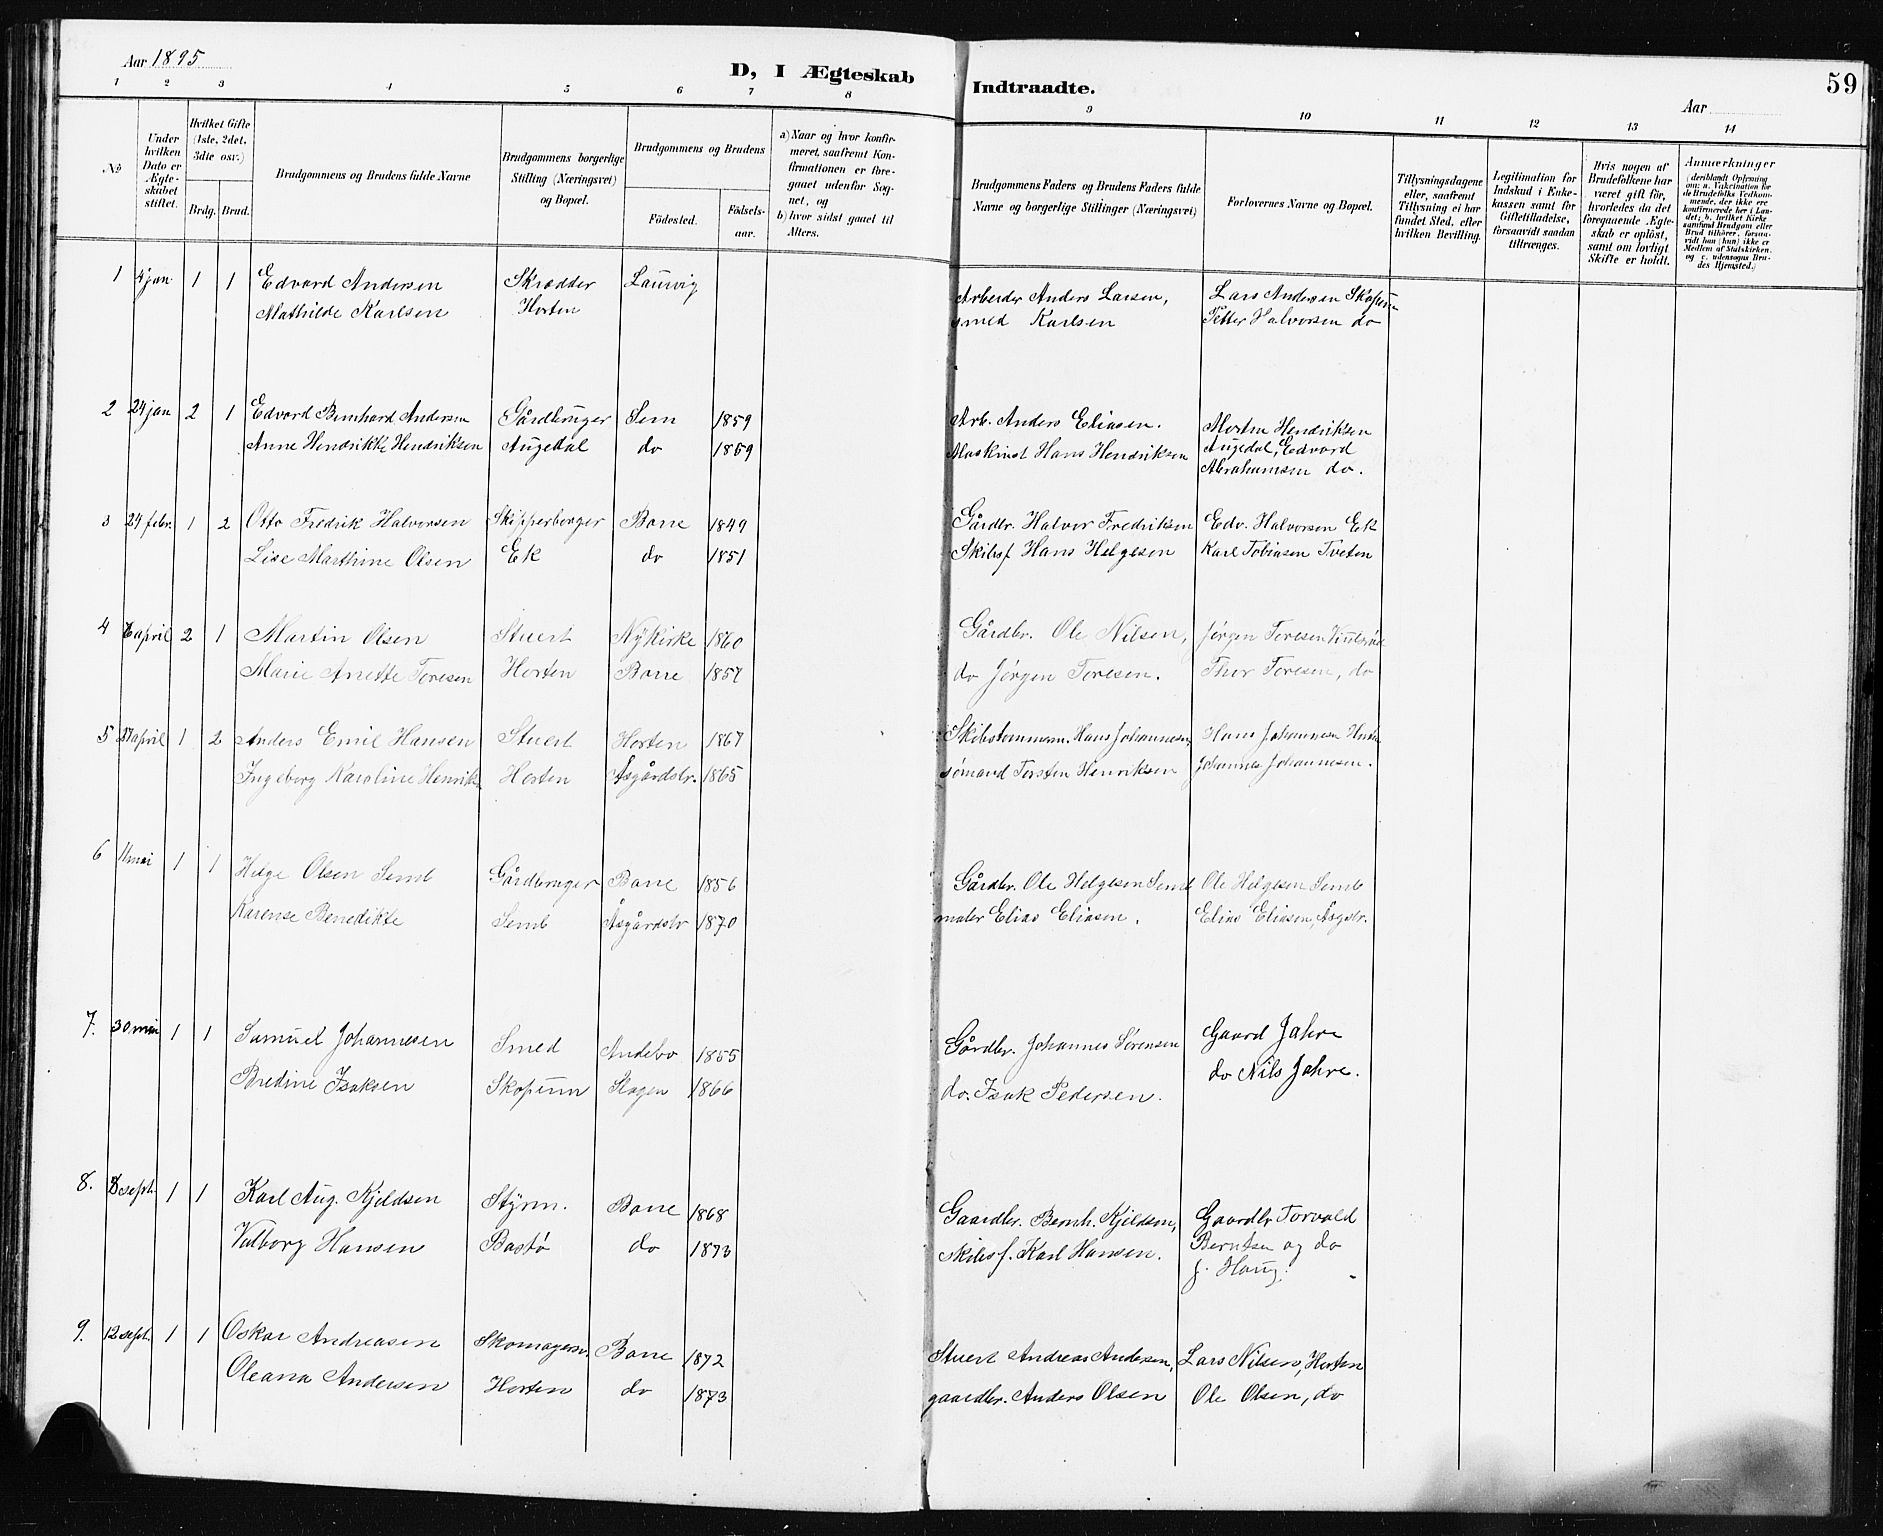 Aar 1895
D, I Ægteskab Indtraadte.
59
Aar
1 2 3 4 5 6 7 8 9 10 11 12 13 14
No
Under hvilken Dato er Ægteskabet stiftet.
Hvilket Gifte (1ste, 2det, 3die osv.)
Brdg. Brud.
Brudgommens og Brudens fulde Navne
Brudgommens borgerlige Stilling (Næringsvei) og Bopæl.
Brudgommens og Brudens
Födested.
Födsels-aar.
a) Naar og hvor konfirmeret, saafremt Konfirmationen er foregaaet udenfor Sognet, og
b) hvor sidst gaaet til Alters.
Brudgommens Faders og Brudens Faders fulde Navne og borgerlige Stillinger (Næringsvei)
Forlovernes Navne og Bopæl.
Tillysningsdagene eller, saafremt Tillysning ei har fundet Sted, efter hvilken Bevilling.
Legitimation for Indskud i Enkekassen samt for Giftetilladelse, forsaavidt saadan tiltrænges.
Hvis nogen af Brudefolkene har været gift för, hvorledes da det foregaaende Ægteskab er oplöst, samt om lovligt Skifte er holdt.
Anmærkninger
(deriblandt Oplysning om: a. Vakcination for de Brudefolks Vedkommende, der ikke ere konfirmerede her i Landet; b. hvilket Kirkesamfund Brudgom eller Brud tilhörer, forsaavidt han (hun) ikke er Medlem af Statskirken, og c. udensogns Brudes Hjemsted.)
1 4 jan 1 1 Edvard Andersen Skrædder Laurvig Arbeider Anders Larsen, Lars Andersen Skopum
Mathilde Karlsen Horten smed Karlsen Petter Halvorsen do
2 24 jan 2 1 Edvard Bernhard Andersen Gårdbruger Sem 1859 Arb. Anders Eliasen. Morten Hendriksen
Anne Hendrikke Hendriksen Augedal do 1869 Maskinst Hans Hendriksen Augedal, Edvard
Abrahamsen do.
3 24 febr. 1 2 Otto Fredrik Halvorsen Skipperborger Borre 1849 Gårdbr. Halvor Fredriksen Edv. Halvorsen Ek
Lise Marthine Olsen Ek do 1851 Skibsf Hans Helgesen Karl Tobiasen Tveten
4 6 april 2 1 Martin Olsen Stuert Nykirke 1860 Gårdbr. Ole Nilsen, Jørgen Toresen
Marie Anette Toresen Horten Borre 1857 do Jørgen Toresen. Thor Toresen, do
5 27 april 1 2 Anders Emil Hansen Stuert Horten 1867 Skibstømmerm. Hans Johannesen, Hans Johannesen
Ingeborg Karoline Henriks. Horten Åsgårdstr. 1865 sømand Torsten Henriksen Johannes Johannesen.
6 11 mai 1 1 Helge Olsen Semb Gårdbruger Borre 1856 Gårdbr. Ole Helgesen Semb Ole Helgesen Semb
Karense Benedikte Semb Åsgårdstr 1870 maler Elias Eliasen. Elias Eliasen, Åsgstr.
7. 30. mai 1 1 Samuel Johannesen Smed Andebo 1855 Gårdbr. Johannes Sørensen Gaard Jahre
Bredine Isaksen Skopum Slagen 1866 do. Isak Pedersen. do Nils Jahre.
8. 8 sept. 1 1 Karl Aug. Kjeldsen Styrm. Borre 1868 Gaardbr. Bernh. Kjeldsen, Gaardbr Torvald
Valborg Hansen Bastø do 1873 skibsf. Karl Hansen. Berntsen og do
J. Haug.
9. 12 sept. 1 1 Oskar Andreasen Skomagersv. Borre 1872 Stuert Andreas Andersen, Lars Nilsen, Horten
Oleana Andersen Horten do 1873 gaardbr. Anders Olsen Ole Olsen, do